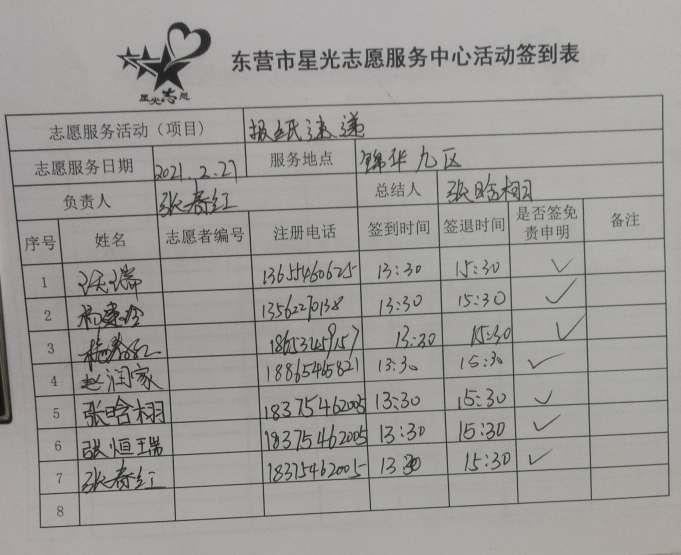 东营市星光志愿服务中心活动签到表
星光志愿
志愿服务活动（项目） 报纸速递
志愿服务日期 2021.2.27 服务地点 锦华九区
负责人 张春红 总结人 张晗栩
序号 姓名 志愿者编号 注册电话 签到时间 签退时间 是否签免责申明 备注
1 瑞 13655460625 13:30 15:30 ✓
2 13562270138 13:30 15:30 ✓
3 杨春红 18653459157 13:30 15:30 ✓
4 赵润家 18865465821 13:30 15:30 ✓
5 张晗栩 18375462005 13:30 15:30 ✓
6 张恒瑞 18375462005 13:30 15:30 ✓
7 张春红 18375462005 13:30 15:30 ✓
8